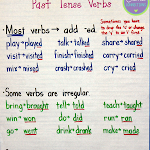 Past Tense Verbs
Sometimes you have
to drop the "e" or change
the "y" to an "i" first.
• Most verbs → add -ed.
play → played talk → talked share → shared
visit → visited finish → finished carry → carried
mix → mixed crash → crashed cry → cried
• Some verbs are irregular.
bring → brought tell → told teach → taught
win → won do → did run → ran
go → went drink → drank make → made